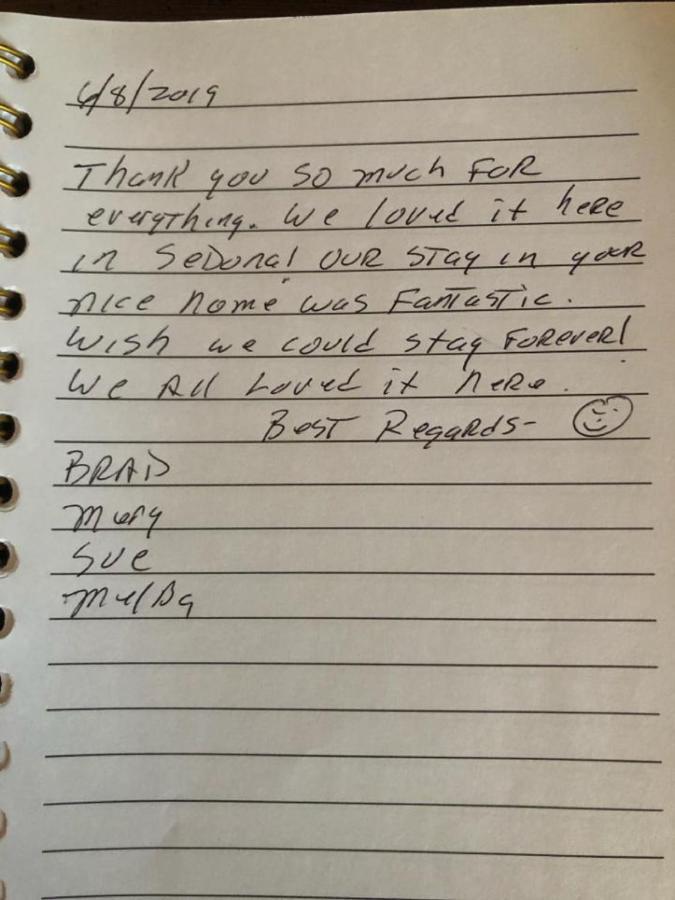 6/8/2019
Thank you so much FOR
everything. We loved it here
in SeDona! OUR STAY in your
nice home was FanTasTic.
Wish we could stay FOReveR!
We All Loved it heRe.
BesT RegaRDs-
BRAD
Mary
Sue